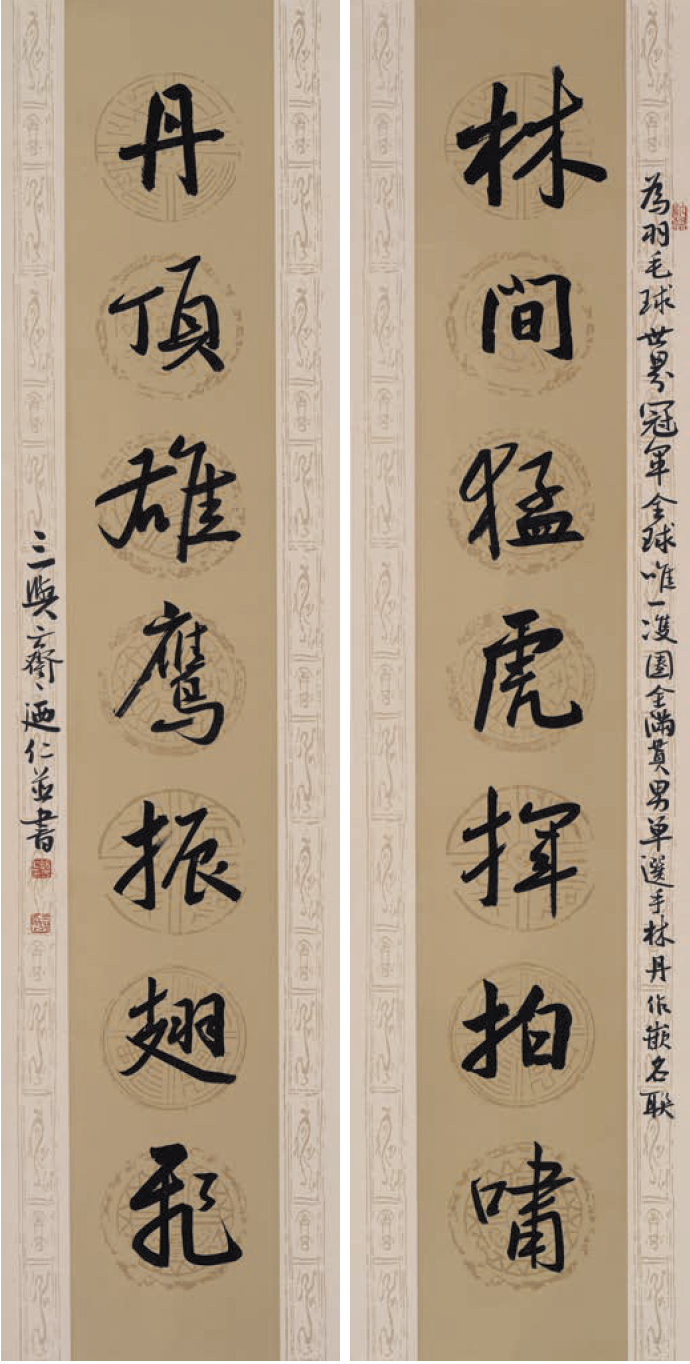 為羽毛球世界冠軍全球唯一獲圓全滿貫男單選手林丹作嵌名聯
林間猛虎揮拍嘯
丹頂雄鷹振翅飛
三與齋迺仁並書